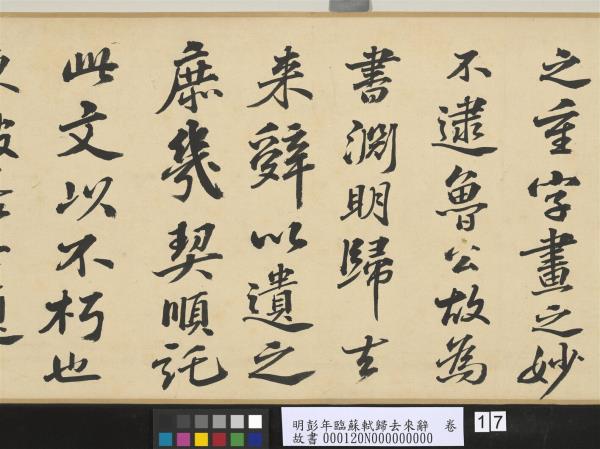 之重字畫之妙
不逮魯公故為
書淵明歸去
来辭以遺之
庶幾契順託
此文以不朽也
明彭年臨蘇軾歸去來辭 卷
故書 000120N000000000
17